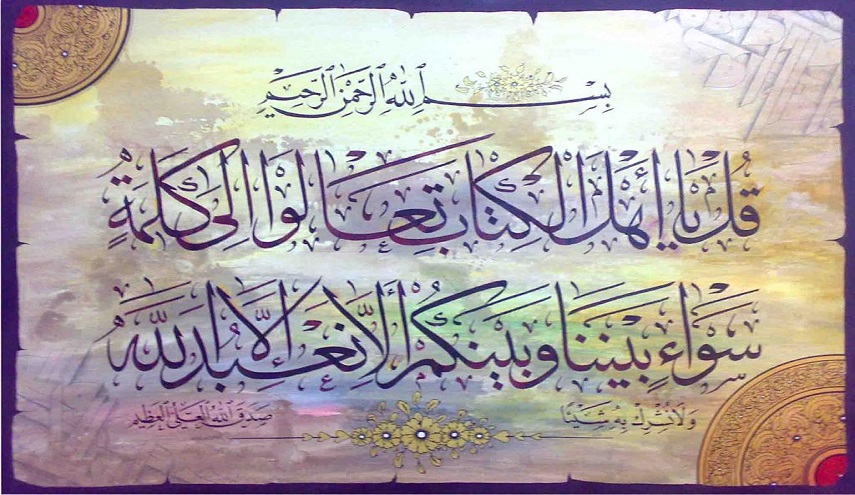 بِسْمِ اللهِ الرَّحْمٰنِ الرَّحِيْمِ
قُلْ يَا أَهْلَ الْكِتَابِ تَعَالَوْا إِلَىٰ كَلِمَةٍ
سَوَاءٍ بَيْنَنَا وَبَيْنَكُمْ أَلَّا نَعْبُدَ إِلَّا اللهَ
وَلَا نُشْرِكَ بِهِ شَيْئًا صَدَقَ اللهُ الْعَلِيُّ الْعَظِيمُ